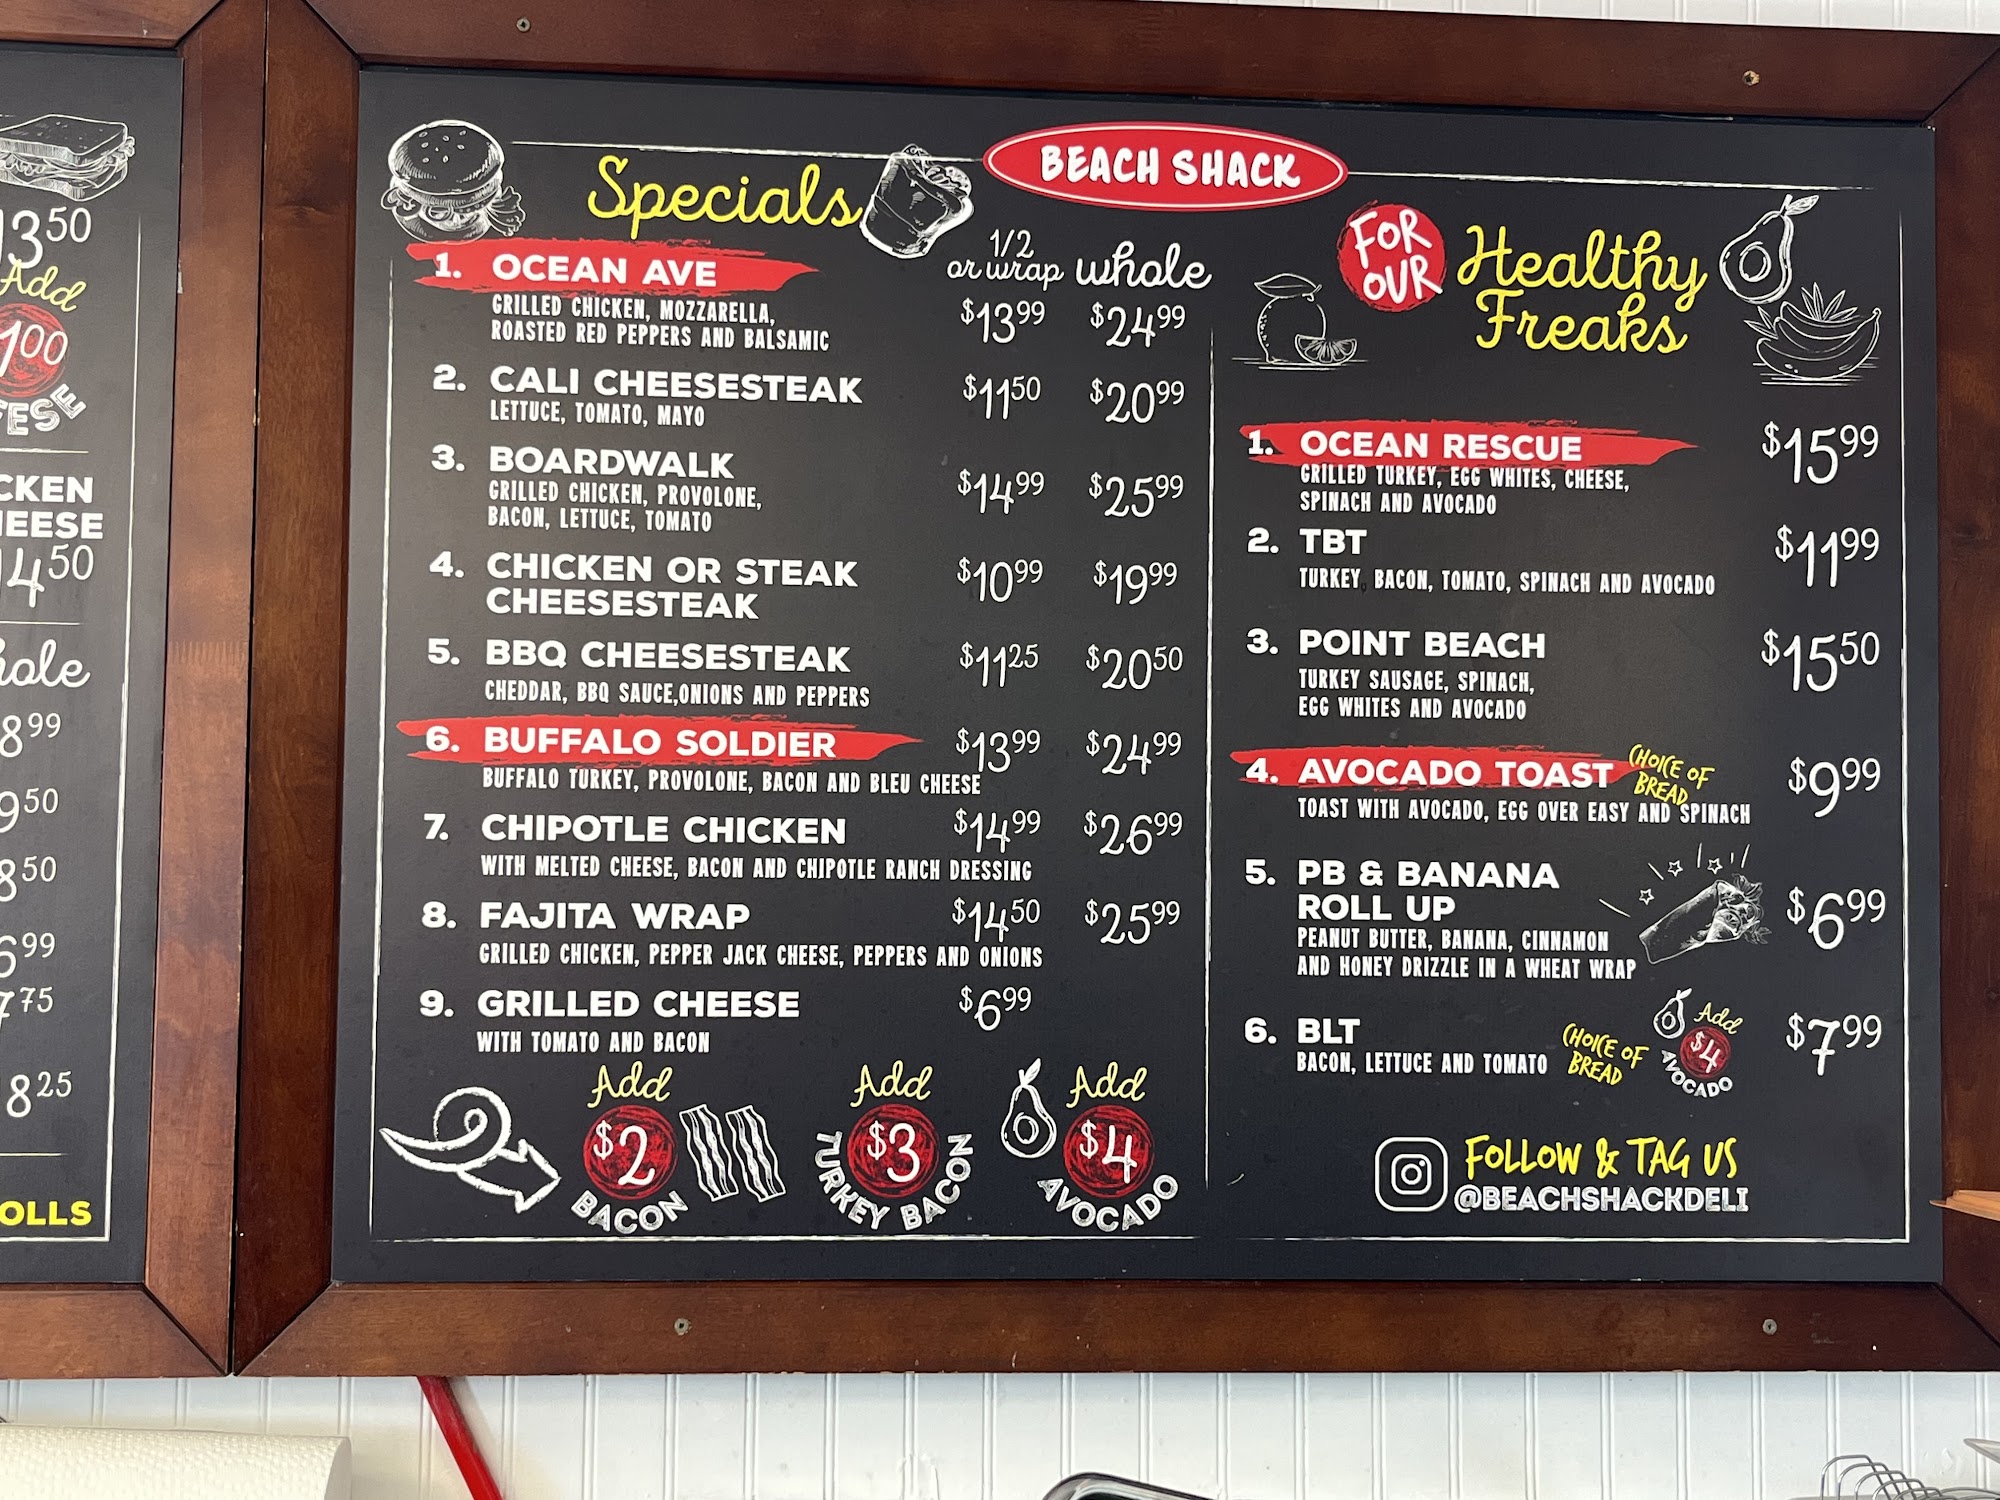 13.50
Add
1.00
CKEN
HEESE
14.50
8.99
9.50
8.50
6.99
7.75
8.25
OLLS
BEACH SHACK
Specials
1/2
or wrap whole
1. OCEAN AVE
GRILLED CHICKEN, MOZZARELLA,
ROASTED RED PEPPERS AND BALSAMIC
$13.99 $24.99
2. CALI CHEESESTEAK $11.50 $20.99
LETTUCE, TOMATO, MAYO
3. BOARDWALK $14.99 $25.99
GRILLED CHICKEN, PROVOLONE,
BACON, LETTUCE, TOMATO
4. CHICKEN OR STEAK $10.99 $19.99
CHEESESTEAK
5. BBQ CHEESESTEAK $11.25 $20.50
CHEDDAR, BBQ SAUCE,ONIONS AND PEPPERS
6. BUFFALO SOLDIER $13.99 $24.99
BUFFALO TURKEY, PROVOLONE, BACON AND BLEU CHEESE
7. CHIPOTLE CHICKEN $14.99 $26.99
WITH MELTED CHEESE, BACON AND CHIPOTLE RANCH DRESSING
8. FAJITA WRAP $14.50 $25.99
GRILLED CHICKEN, PEPPER JACK CHEESE, PEPPERS AND ONIONS
9. GRILLED CHEESE $6.99
WITH TOMATO AND BACON
Add
$2
BACON
Add
$3
TURKEY BACON
Add
$4
AVOCADO
FOR
OUR
Healthy
Freaks
1. OCEAN RESCUE $15.99
GRILLED TURKEY, EGG WHITES, CHEESE,
SPINACH AND AVOCADO
2. TBT $11.99
TURKEY, BACON, TOMATO, SPINACH AND AVOCADO
3. POINT BEACH $15.50
TURKEY SAUSAGE, SPINACH,
EGG WHITES AND AVOCADO
4. AVOCADO TOAST $9.99
CHOICE OF
BREAD
TOAST WITH AVOCADO, EGG OVER EASY AND SPINACH
5. PB & BANANA
ROLL UP $6.99
PEANUT BUTTER, BANANA, CINNAMON
AND HONEY DRIZZLE IN A WHEAT WRAP
6. BLT $7.99
BACON, LETTUCE AND TOMATO
CHOICE OF
BREAD
Add
$4
AVOCADO
FOLLOW & TAG US
@BEACHSHACKDELI